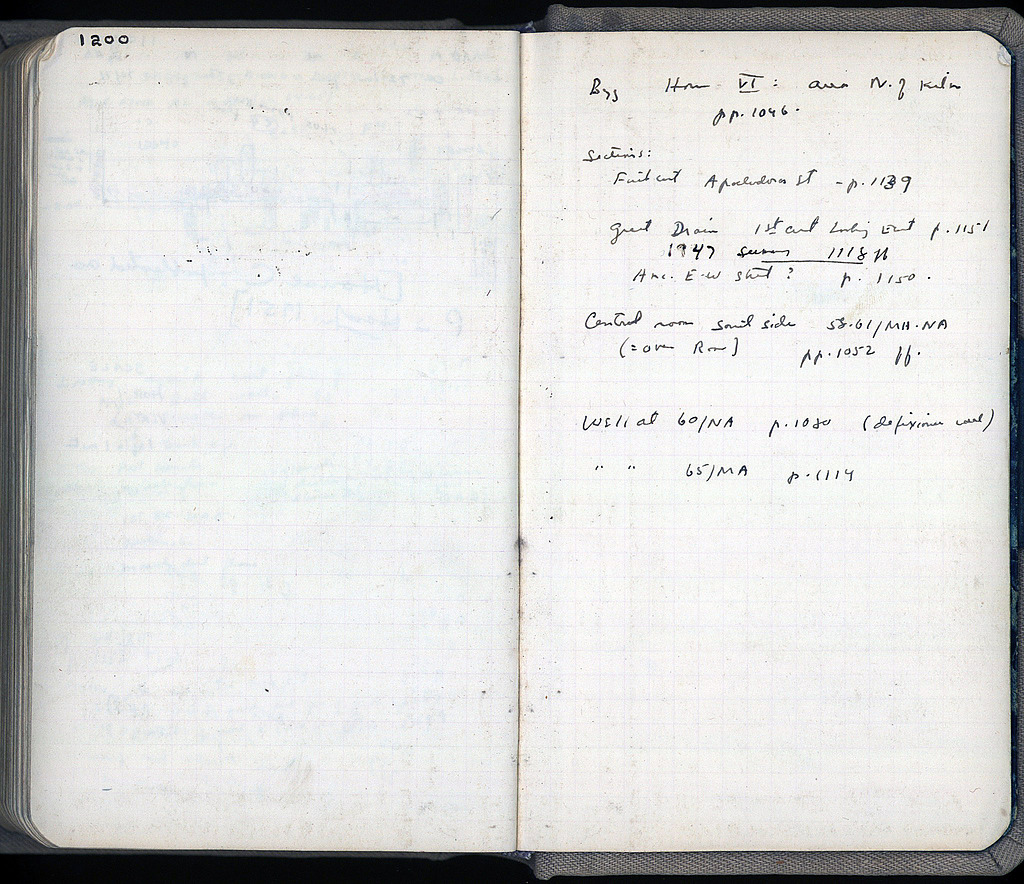 1200
Byz House VI: area N. of Kiln
pp. 1046.
Sections:
First cut Apollodorus St - p. 1139
Great Drain 1st cut looking East p. 1151
1947 season 1118 ff
Anc. E-W street? p. 1150.
Central room South side 58-61/MA-NA
(= over Rom] pp. 1052 ff.
Well at 60/NA p. 1080 (defixiones well)
" " 65/MA p. 1114